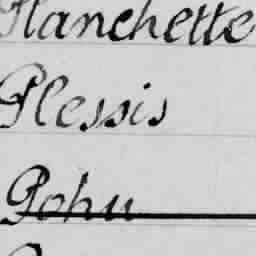 Planchette
Plessis
Pohu